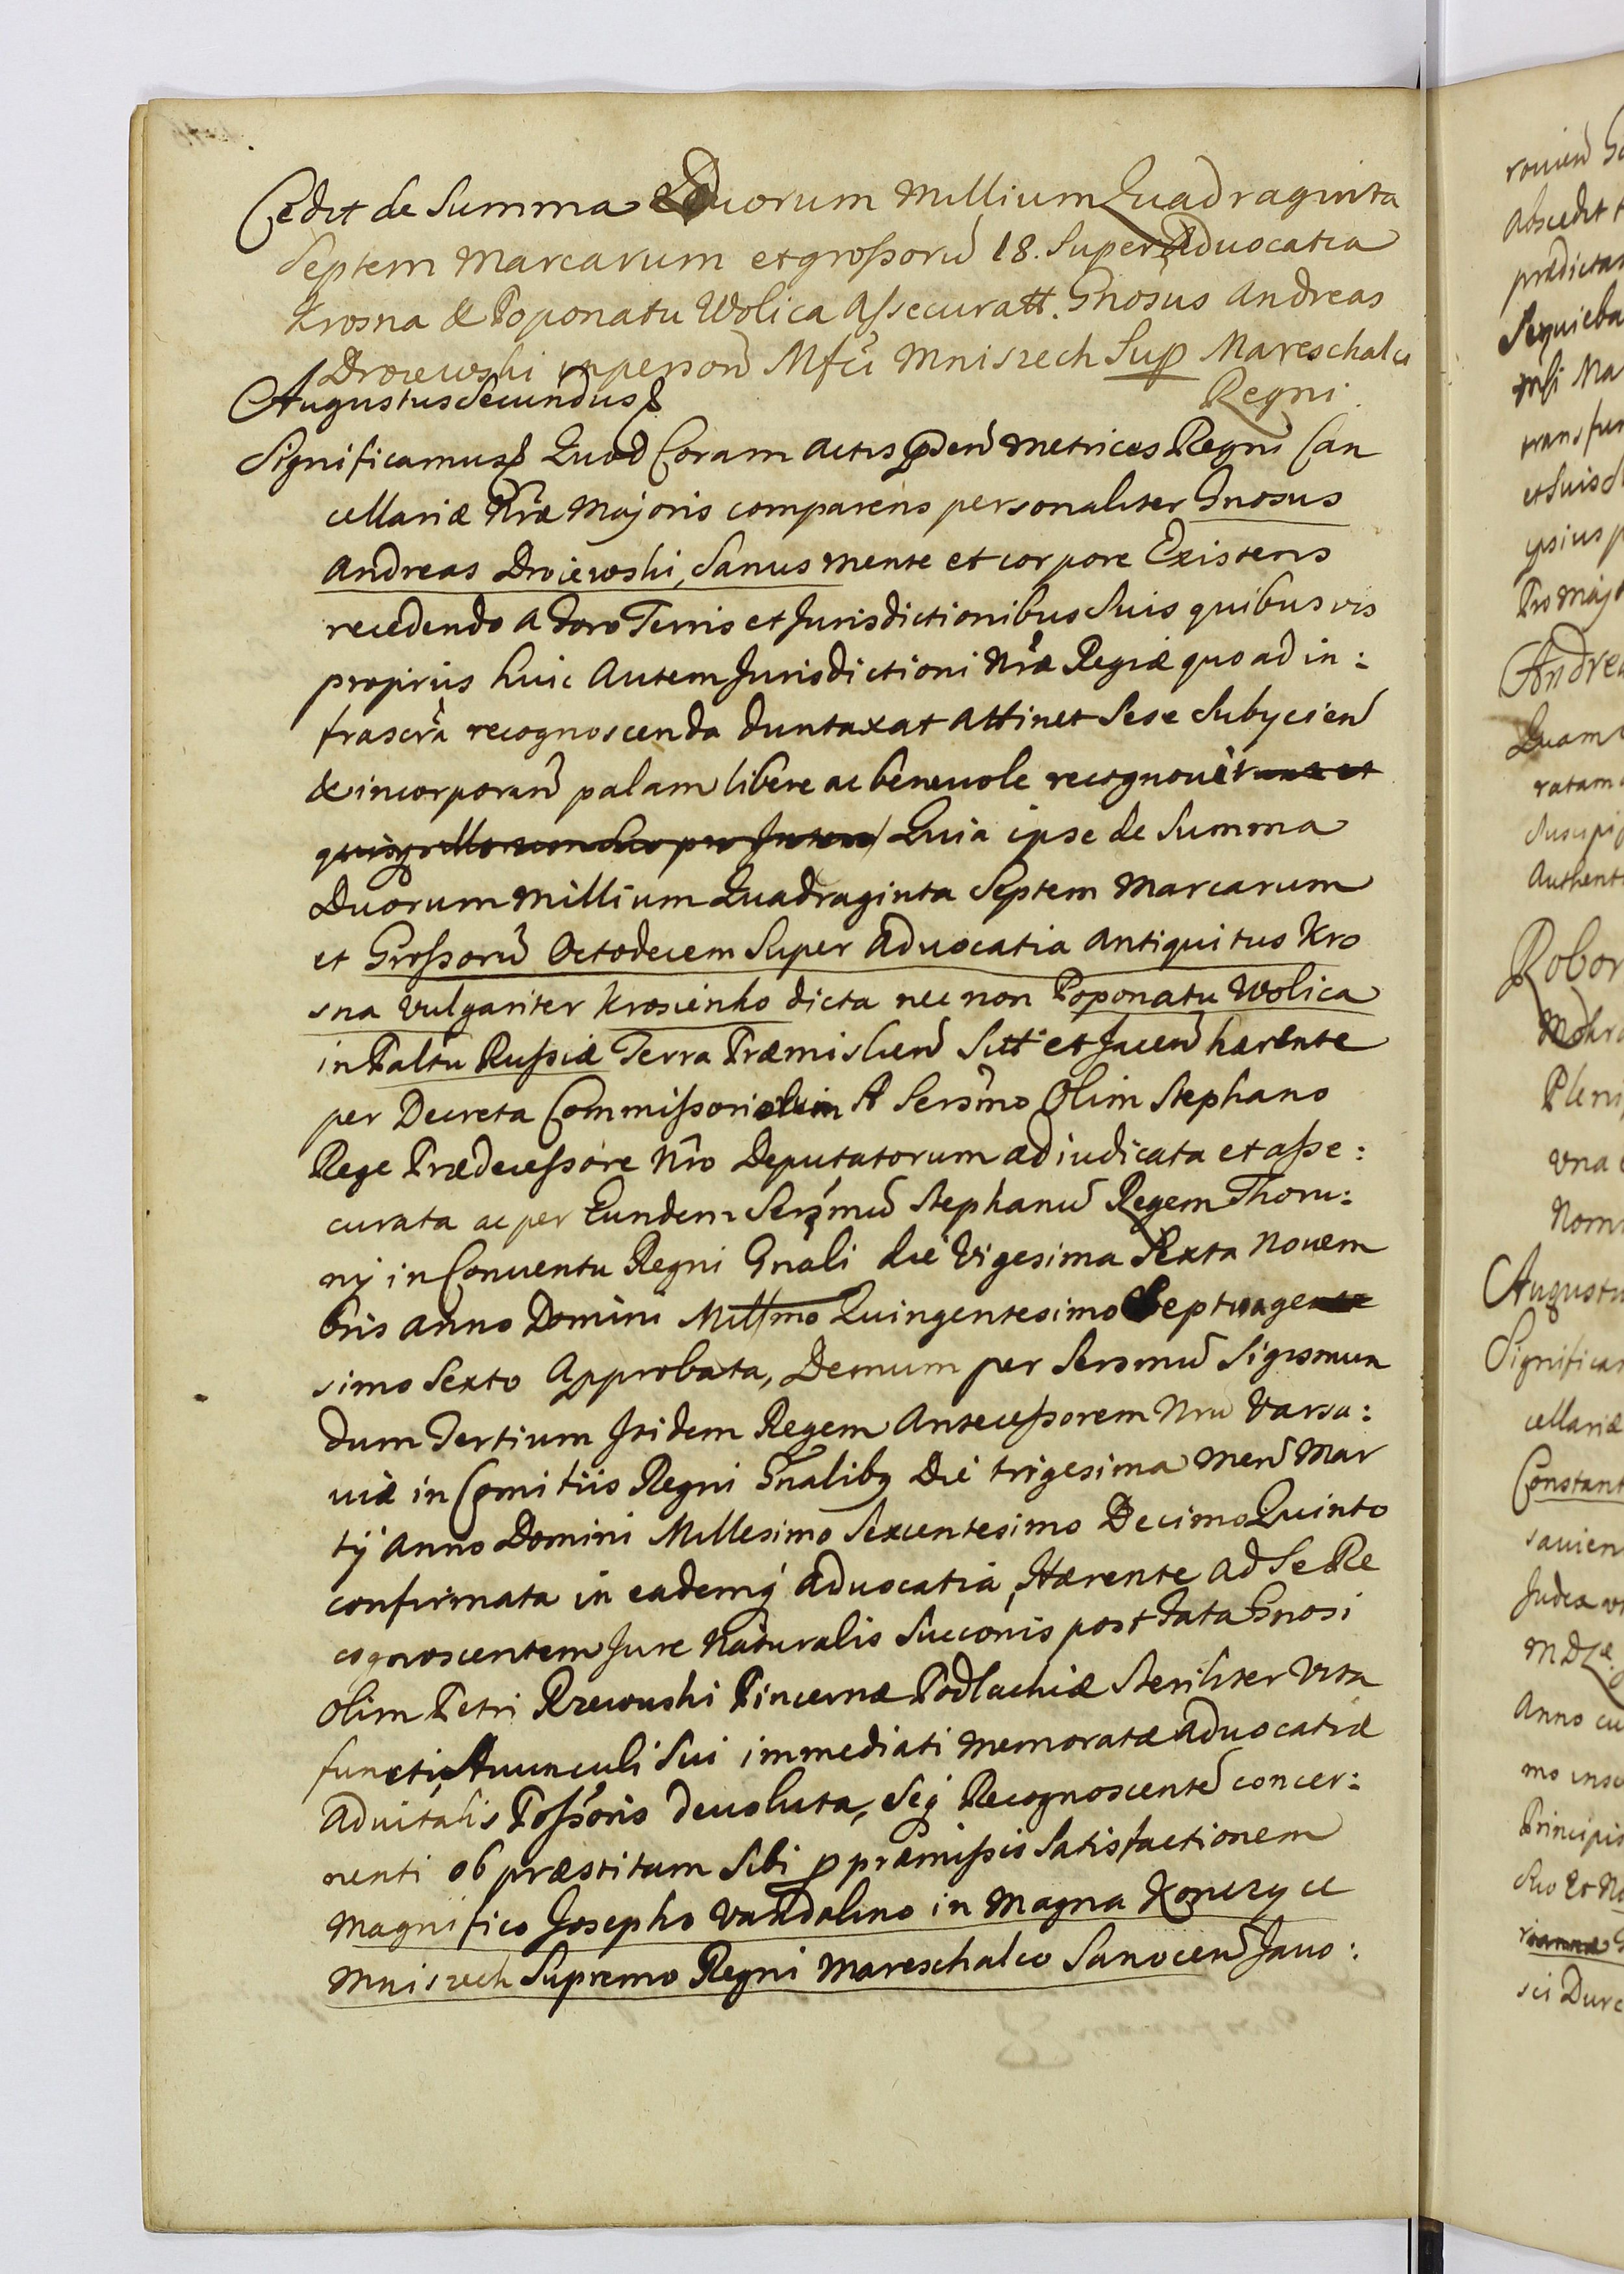 Cedit de Summa Duorum Millium Quadraginta
Septem Marcarum et grossorũ 18. Super Advocatia
Krosna & Toponatu Wolica Assecuratt. Gnosus Andreas
Droiewski in personã Mfci Mniszech Sup Mareschalci
Regni.
Augustus Secundus &
Significamus & Quod Coram Actis pñtiñ Metrices Regni Can
cellariæ Nræ Majoris comparens personaliter Gnosus
Andreas Droiewski, Sanus mente et corpore Existens
recedendo a Foro Terris et Jurisdictionibus Suis quibusvis
propriis huic Autem Jurisdictioni Nræ Regiæ quoad in:
frascrã recognoscenda duntaxat attinet Sese Subycieñ
& incorporañ palam libere ac benevole recognovit
Quia ipse de Summa
Duorum Millium Quadraginta Septem Marcarum
et Grossorũ Octodecem Super Advocatia Antiquitus Kro
sna vulgariter Krosienko dicta nec non Toponatu Wolica
in Paltu Russiæ Terra Præmislieñ Sitt et Jaceñ hærente
per Decreta Commissori A Sersmo Olim Stephano
Rege Prædecessore Nro Deputatorum adiudicata et asse:
curata ac per Eundem Sersmũ Stephanũ Regem Thoru:
nÿ in Conventu Regni Gnali die Vigesima Sexta Novem
bris Anno Domini Millmo Quingentesimo Septuage
simo Sexto Approbata, Demum per Sersmũ Sigismun
dum Tertium Itidem Regem Antecessorem Nrũ Varsa:
viæ in Comitiis Regni Gnalibq Die trigesima Meñ Mar
tÿ Anno Domini Millesimo Sexcentesimo Decimo Quinto
confirmata in eademq Advocatia, Hærente Ad Se Re
cognoscentem Jure Naturalis Succonis post Fata Gnosi
Olim Petri Rzewuski Pincernæ Podlachiæ Steriliter Vita
functi Avunculi Sui immediati Memoratæ Advocatiæ
Advitalis Possoris devoluta, Seq Recognoscentẽ concer:
nenti ob præstitam Sibi p præmissis Satisfactionem
Magnifico Josepho Vandalino in Magna Konczyce
Mniszech Supremo Regni Mareschalco Sanoceñ Javo:
rovieñ
Abscedit
prædictas
mfi Ma
transfun
et Suis S
ipsius p
Pro Majo
Andrea
Quam
ratam
Suscipi
Authent
Robor
Pleni
Una
Nom
Augustu
Significam
cellariæ
Constant
Judex
Anno cu
Principi
Suo Et No